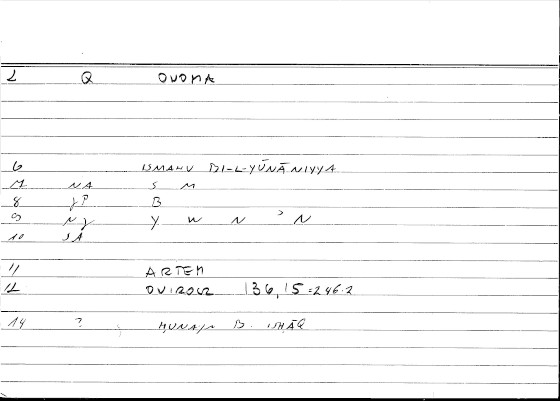 2 Q OVOMA
6 ISMAHU BI-L-YŪNĀNIYYA
7 NA S M
8 γP B
9 Nγ Y W N ʾ N
10 SA
11 ARTEM
12 DVIROCZ 136,15=246.2
14 ? ḤUNAYN B. ISḤĀQ